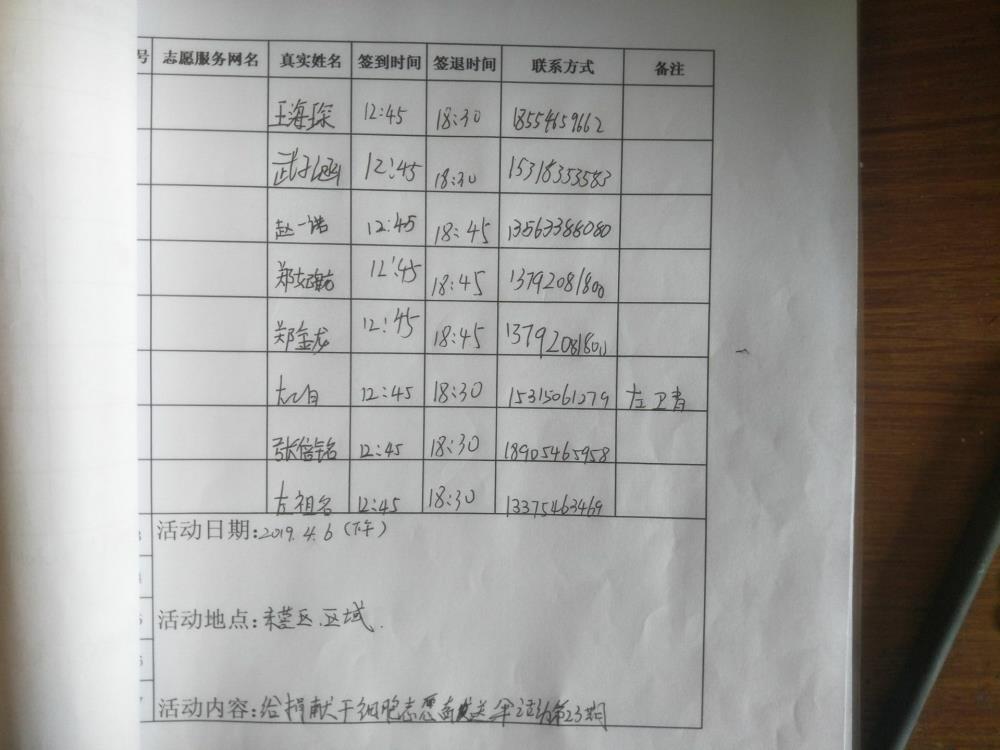 号 志愿服务网名 真实姓名 签到时间 签退时间 联系方式 备注
王海琛 12:45 18:30 18554659662
武子涵 12:45 18:30 15318353583
赵一诺 12:45 18:45 13563388080
郑 12:45 18:45 13792081800
郑金龙 12:45 18:45 13792081800
12:45 18:30 15315061279 左卫青
张倍铭 12:45 18:30 18905465958
左祖名 12:45 18:30 13375463469
活动日期:2019.4.6(下午)
活动地点:东营区.区域.
活动内容:给捐献干细胞志愿者发送伞活动第23期